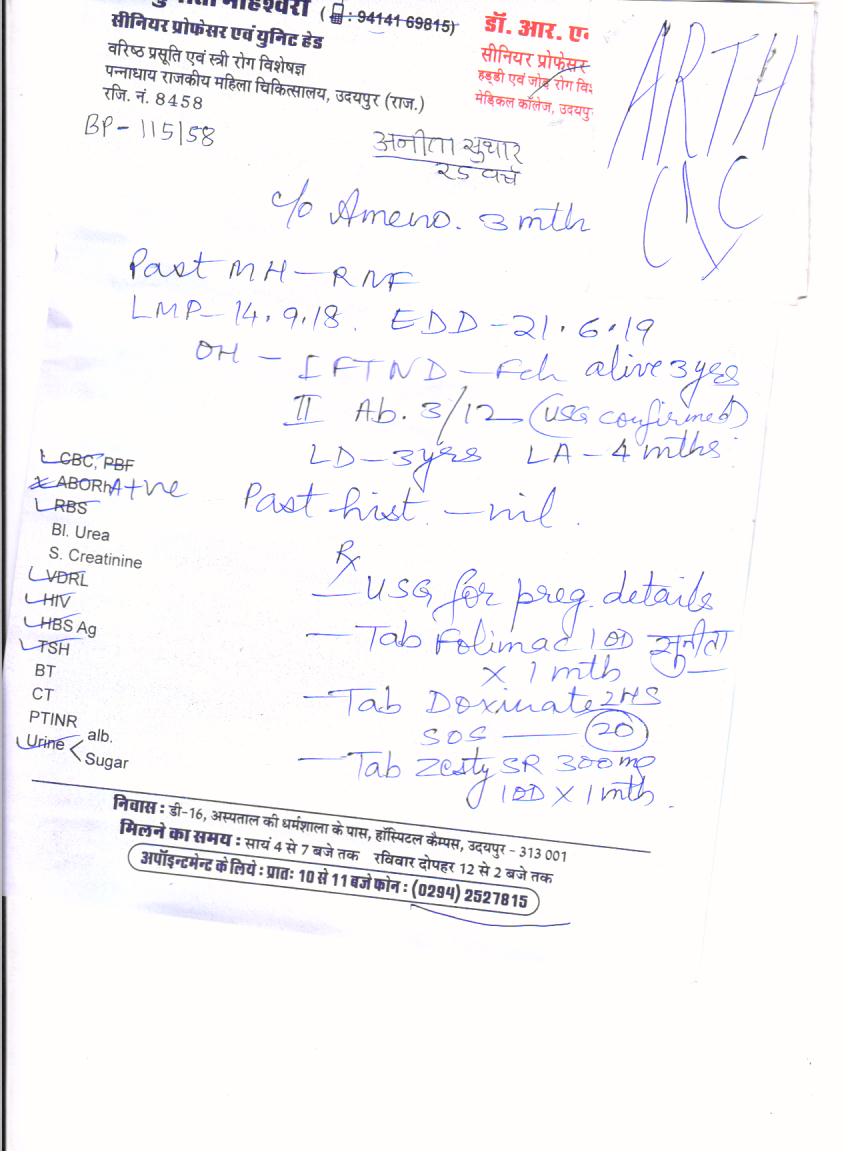 माहेश्वरी ( : 94141 69815)
सीनियर प्रोफेसर एवं युनिट हेड
वरिष्ठ प्रसूति एवं स्त्री रोग विशेषज्ञ
पन्नाधाय राजकीय महिला चिकित्सालय, उदयपुर (राज.)
रजि. नं. 8458
डॉ. आर. ए
सीनियर प्रोफेसर
हड्डी एवं जोड़ रोग विशे
मेडिकल कॉलेज, उदयपु
ARTH
BP - 115/58
अनीता सुथार
25 वर्ष
c/o Ameno. 3 mth
Past MH - RNF
LMP - 14.9.18. EDD - 21.6.19
OH - I FTND - Fch alive 3 yrs
II Ab. 3/12 (USG confirmed)
LD - 3 yrs LA - 4 mths
Past hist. - nil.
CBC, PBF
ABORh A+ve
RBS
Bl. Urea
S. Creatinine
VDRL
HIV
HBS Ag
TSH
BT
CT
PTINR
Urine < alb.
Sugar
Rx
- USG for preg. details
- Tab Folimac 1 OD सुनीता
x 1 mth
- Tab Doxinate 2 HS
SOS - 20
- Tab Zesty SR 300 mg
1 OD x 1 mth.
निवास : डी-16, अस्पताल की धर्मशाला के पास, हॉस्पिटल कैम्पस, उदयपुर - 313 001
मिलने का समय : सायं 4 से 7 बजे तक रविवार दोपहर 12 से 2 बजे तक
अपॉइन्टमेन्ट के लिये : प्रातः 10 से 11 बजे फोन : (0294) 2527815